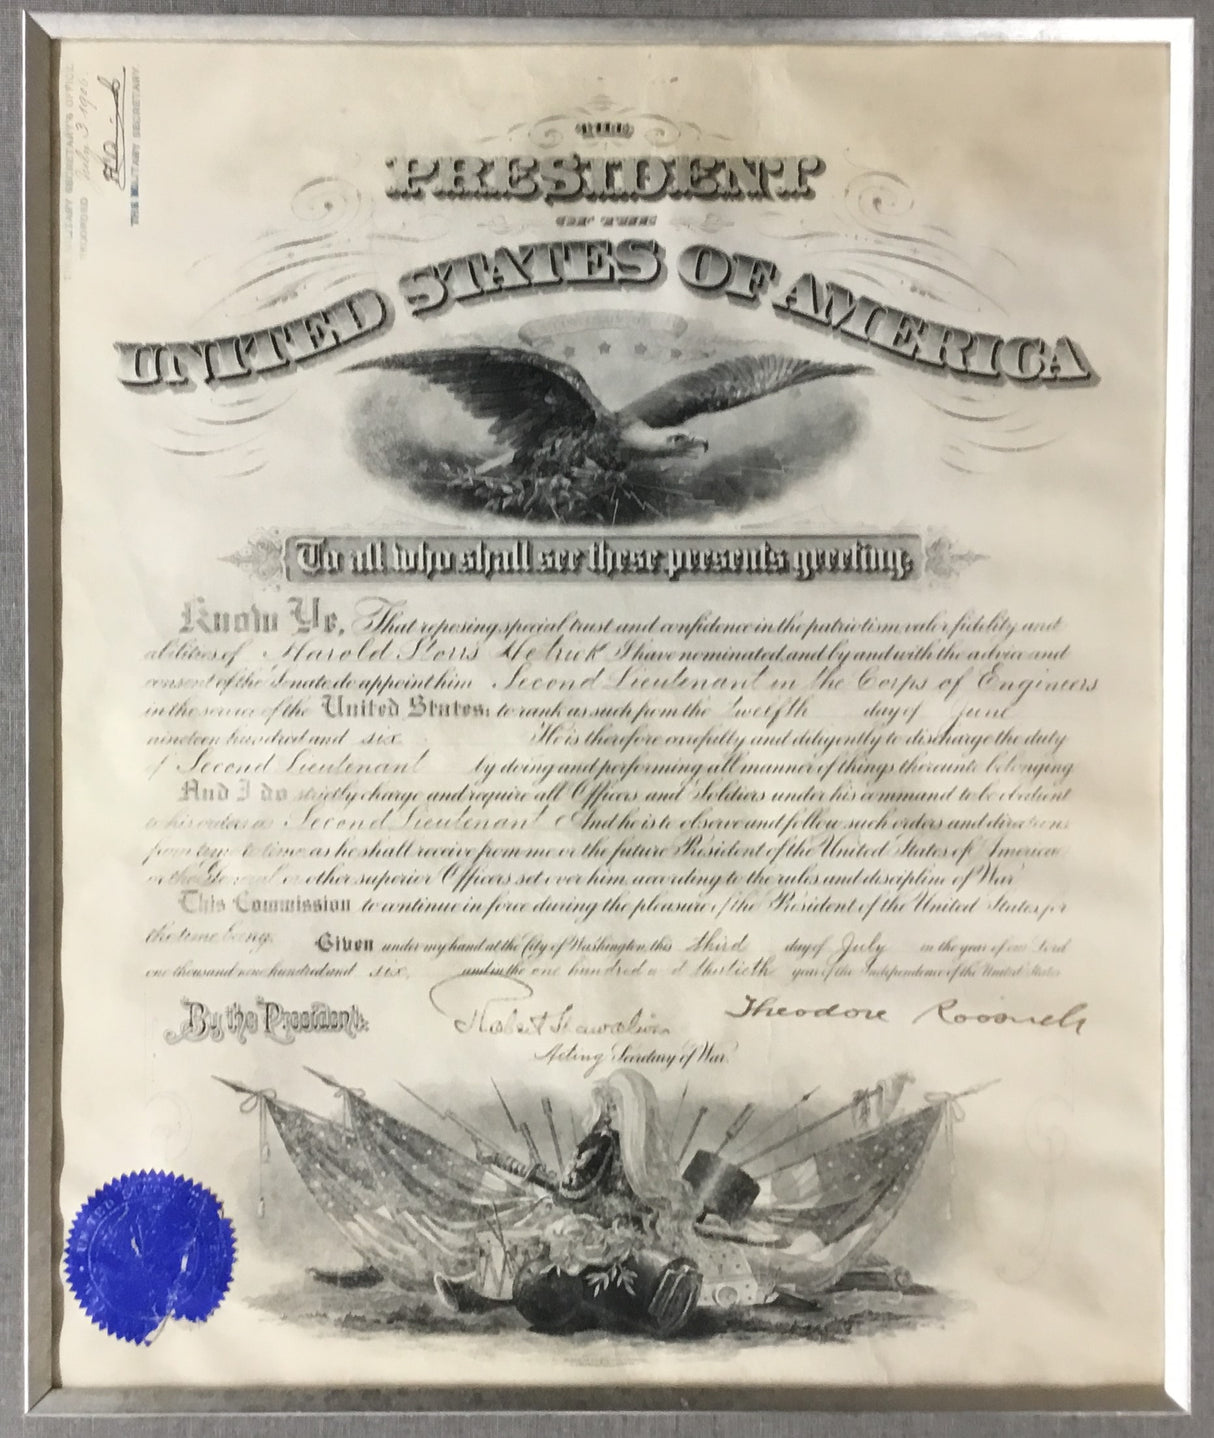 MILITARY SECRETARY'S OFFICE,
RECORDED July 3 1906.
THE MILITARY SECRETARY.
THE
PRESIDENT
OF THE
UNITED STATES OF AMERICA
To all who shall see these presents greeting;
Know Ye, That reposing special trust and confidence in the patriotism valor fidelity and
abilities of Harold Storrs Hetrick I have nominated, and by and with the advice and
consent of the Senate do appoint him Second Lieutenant in the Corps of Engineers
in the service of the United States: to rank as such from the Twelfth day of June
nineteen hundred and six. He is therefore carefully and diligently to discharge the duty
of Second Lieutenant by doing and performing all manner of things thereunto belonging
And I do strictly charge and require all Officers and Soldiers under his command to be obedient
to his orders as Second Lieutenant And he is to observe and follow such orders and directions
from time to time as he shall receive from me or the future President of the United States of America
or the General or other superior Officers set over him, according to the rules and discipline of War
This Commission to continue in force during the pleasure of the President of the United States for
the time being. Given under my hand at the City of Washington, this third day of July in the year of our Lord
one thousand nine hundred and six, and in the one hundred and thirtieth year of the Independence of the United States
By the President: Robert Shaw Oliver Theodore Roosevelt
Acting Secretary of War.